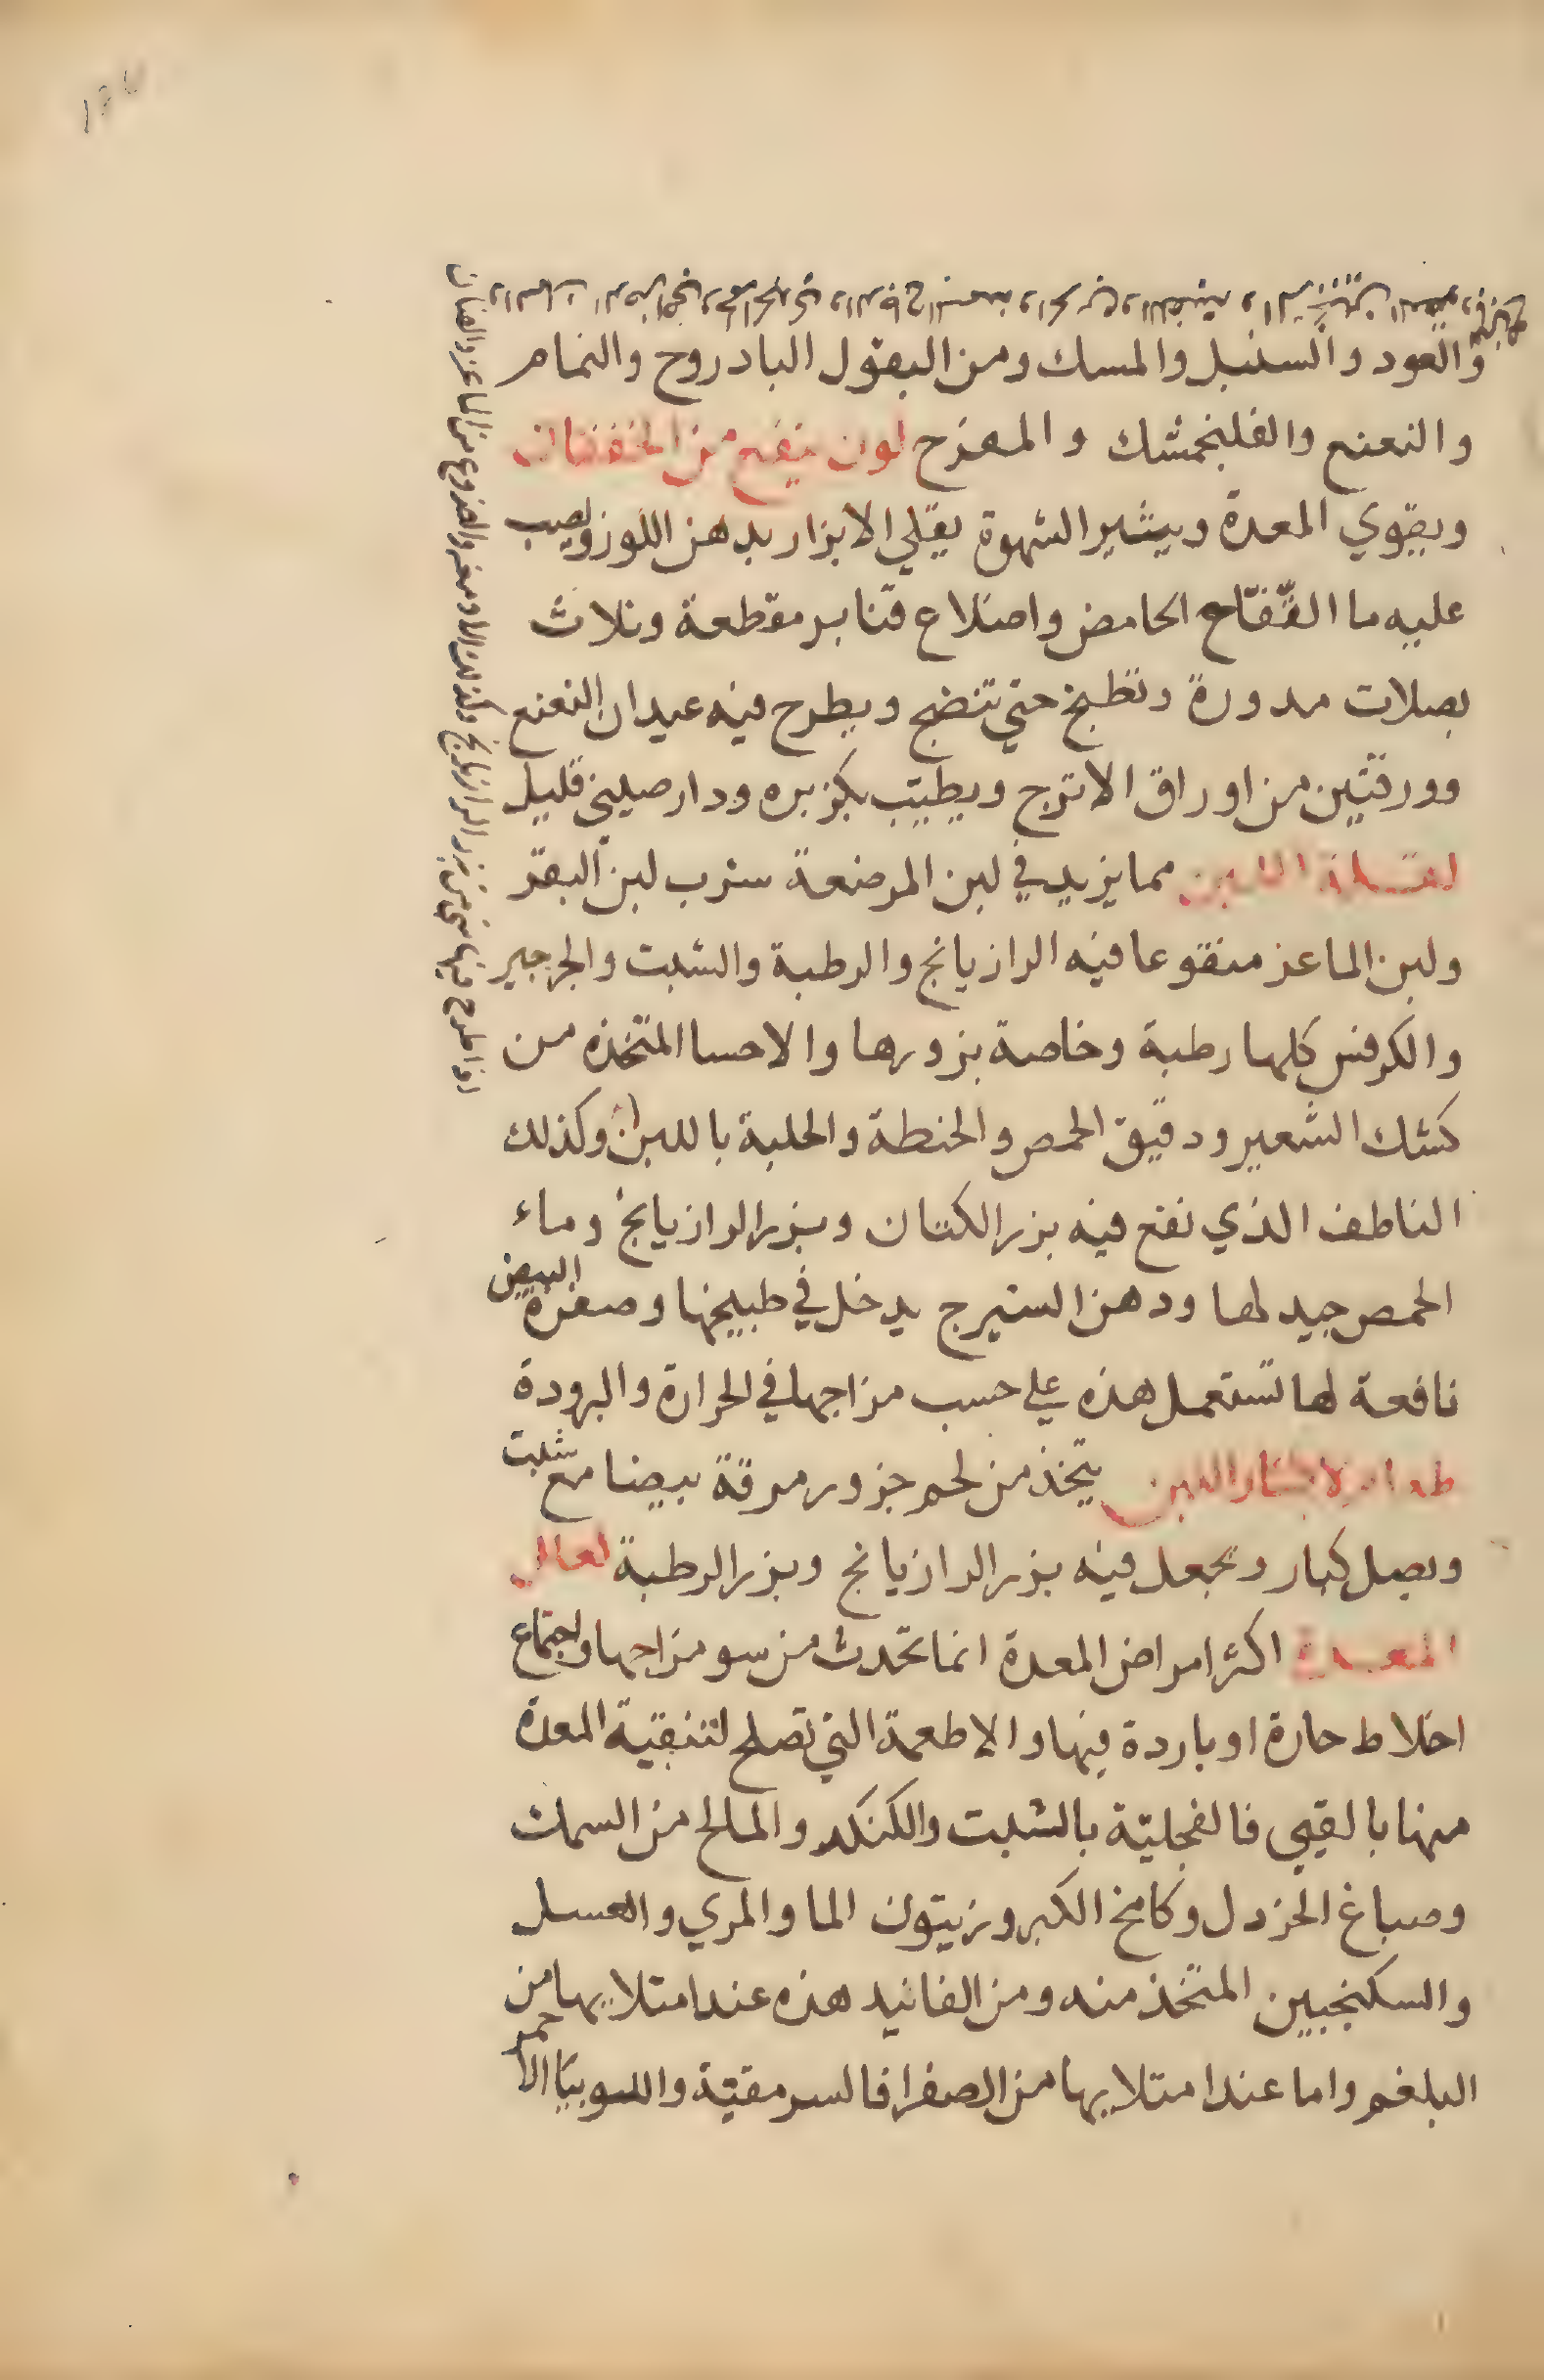 والعود والسنبل والمسك ومن البقول البادروج والنمام
والنعنع والفلنجمشك والمفرح لون ينفع من الخفقان
ويقوي المعدة ويثير الشهوة يقلي الابزار بدهن اللوز ويصب
عليه ما التفاح الحامض واضلاع قنابر مقطعة وثلاث
بصلات مدورة وتطبخ حتي تنضج ويطرح فيه عيدان النعنع
وورقتين من اوراق الاترج ويطيب بكزبره ودارصيني قليل
لقلة اللبن مما يزيد في لبن المرضعة شرب لبن البقر
ولبن الماعز منقوعا فيه الرازيانج والرطبة والشبت والجرجير
والكرفس كلها رطبة وخاصة بزورها والاحسا المتخذه من
كشك الشعير ودقيق الحمص والحنطة والحلبة باللبن وكذلك
الناطف الذي نقع فيه بزر الكتان وبزر الرازيانج وماء
الحمص جيد لها ودهن الشيرج يدخل في طبيخها وصفرة البيض
نافعة لها تستعمل هذه علي حسب مزاجها في الحرارة والبرودة
طعام لانتشار اللبن يتخذ من لحم جزور مرقة بيضا مع شبت
وبصل كبار وتجعل فيه بزر الرازيانج وبزر الرطبة لعلل
المعدة اكثر امراض المعدة انما تحدث من سو مزاجها واجتماع
اخلاط حارة او باردة فيها والاطعمة التي تصلح لتنقية المعدة
منها بالقيي فالفجلية بالشبت والكنكر والمالح من السمك
وصباغ الخردل وكامخ الكبر وزيتون الما والمري والعسل
والسكنجبين المتخذ منه ومن الفانيد هذه عند امتلايها من
البلغم واما عند امتلايها من الصفرا فالسرمقية واللوبيا الاحمر